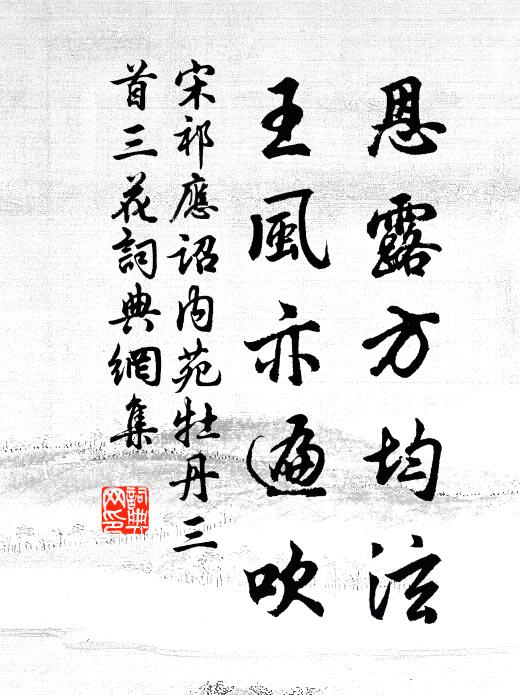 恩露方均泫
王風亦遍吹
宋祁應詔内苑牡丹三
首三花詞典網集
詞典网印